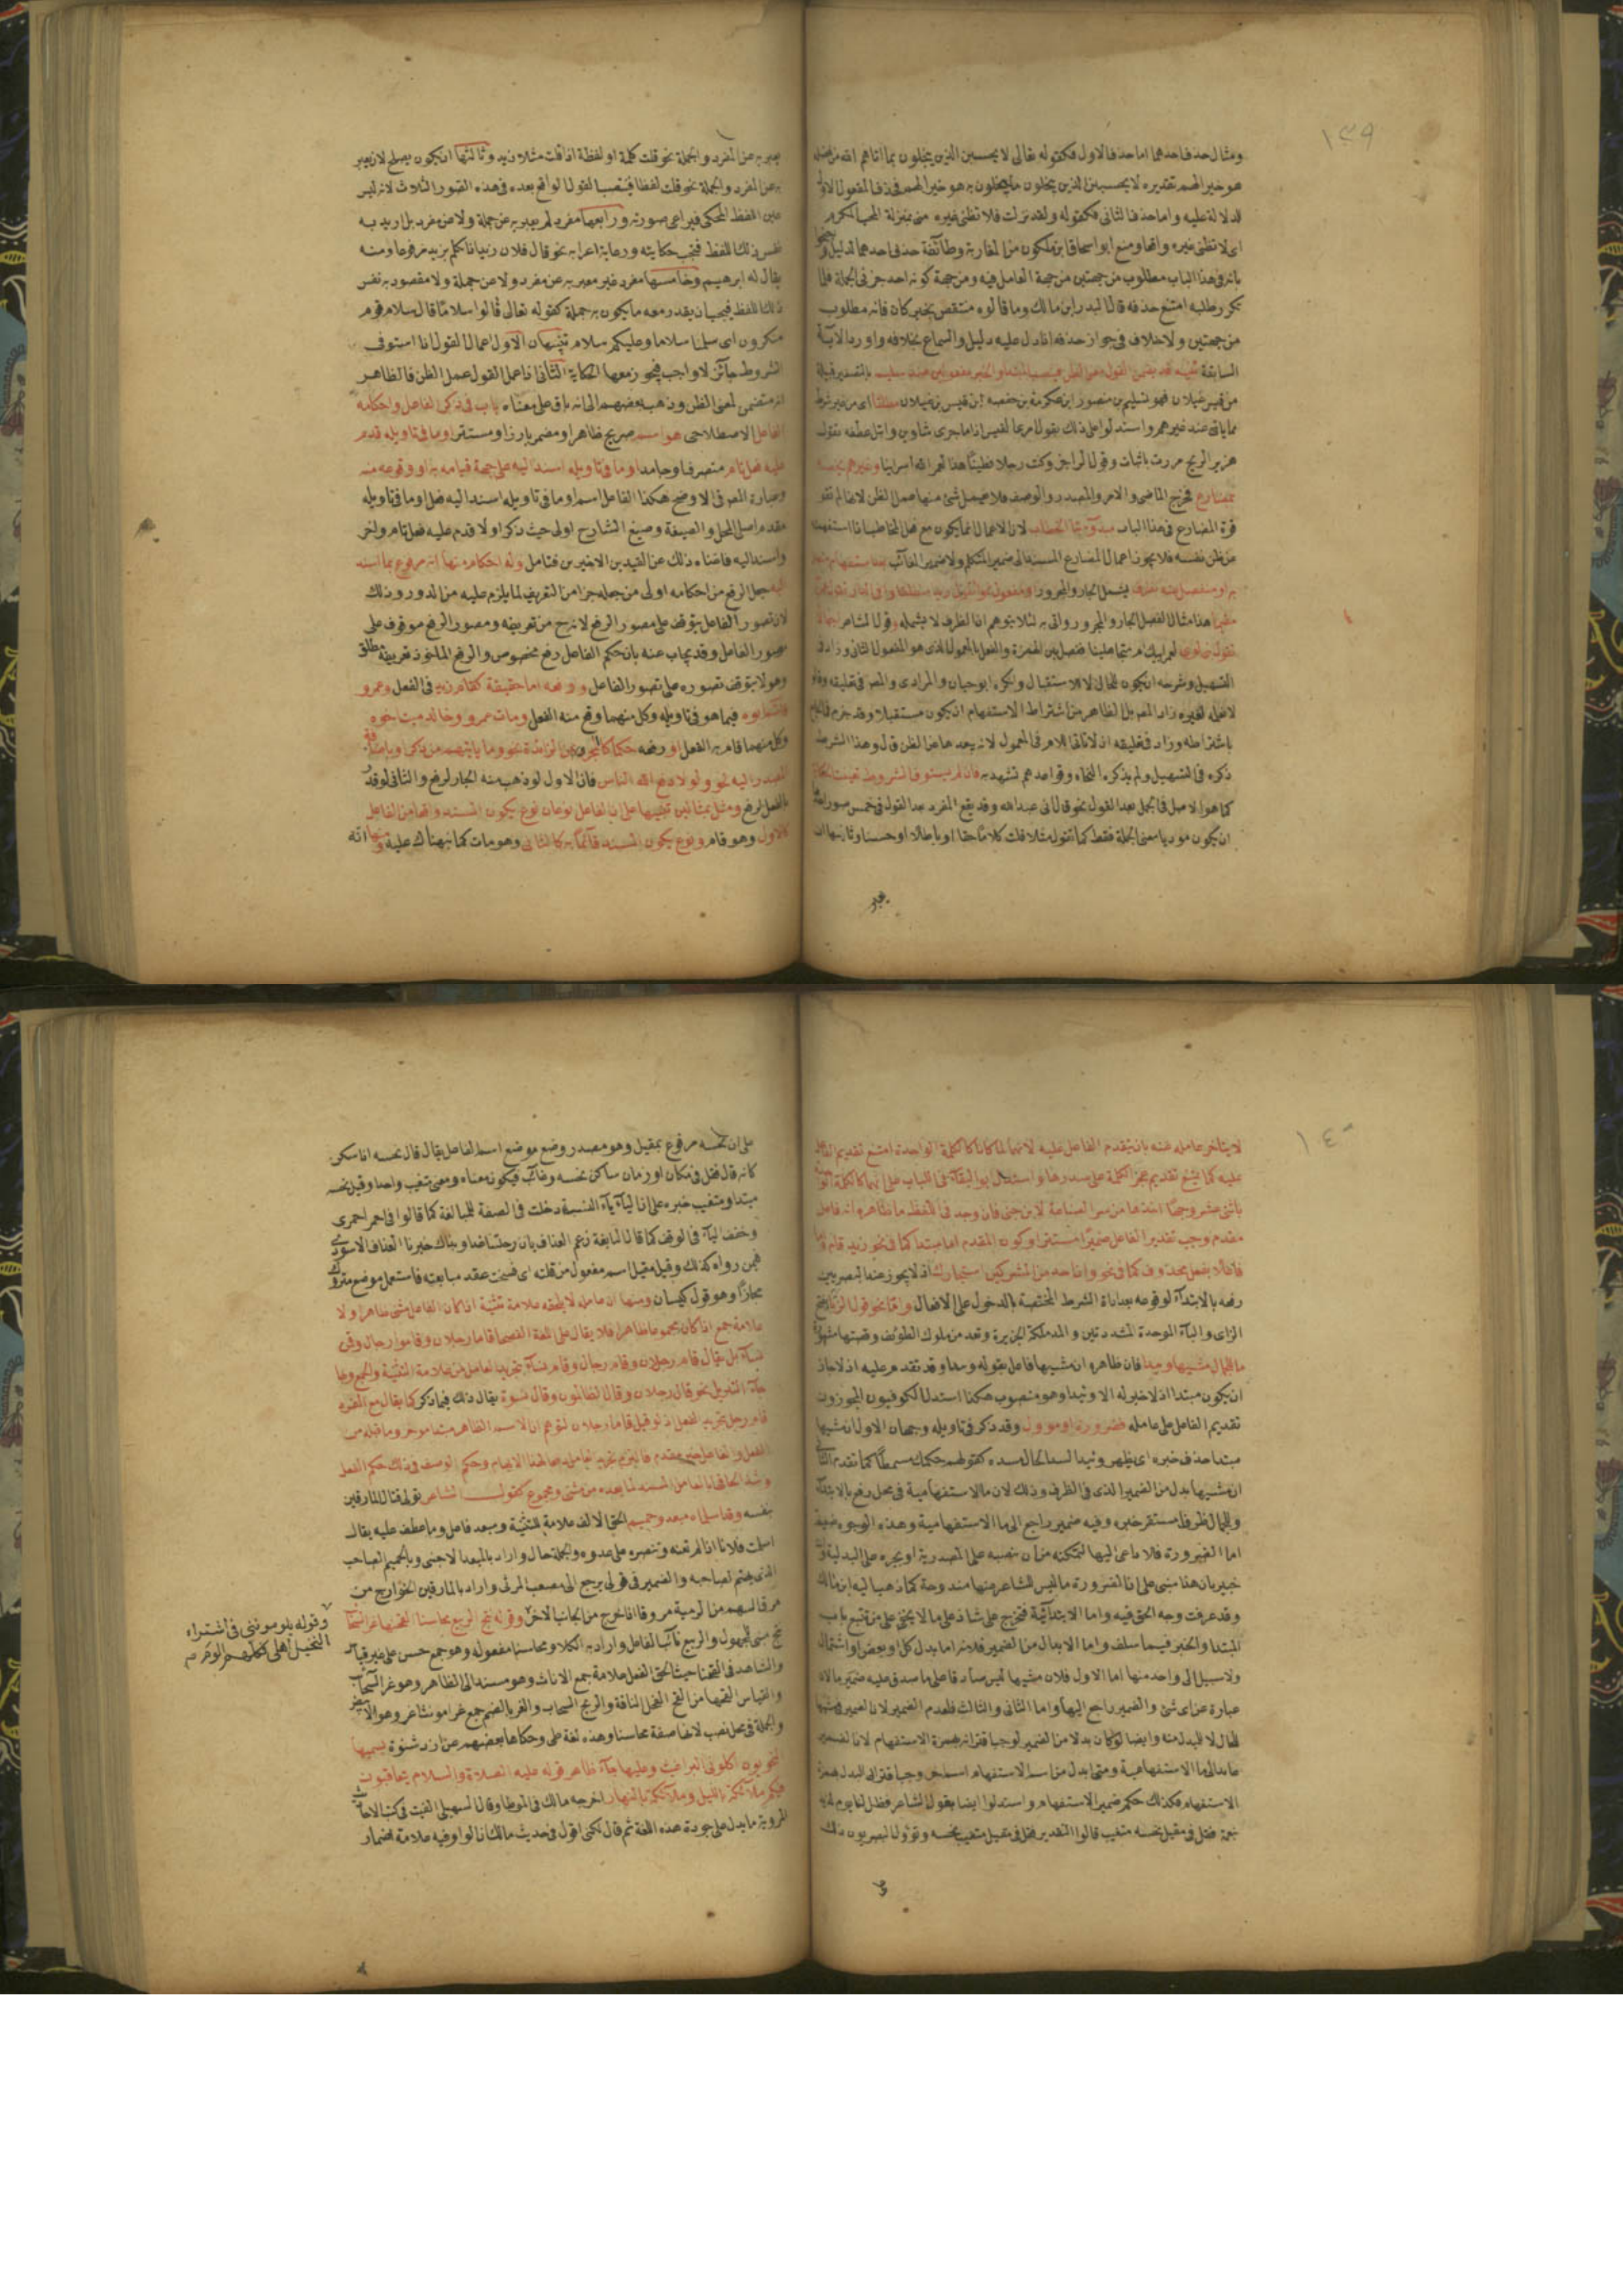 ١٣٩
ومثال حذف احدهما اما حذف الاول فكقوله تعالى لا يحسبن الذين يبخلون بما اتاهم الله من فضله
هو خير الهم تقديره لا يحسبن الذين يبخلون ما يبخلون به هو خير الهم فحذف المفعول الاول
للدلالة عليه واما حذف الثاني فكقوله ولقد نزلت فلا تظنى غيره منى بمنزلة المحب المكرم
اى لا تظنى غيره واقعا ومنع ابو اسحاق ابن ملكون من المغاربة وطائفة حذف احدهما لدليل
بانه فى هذا الباب مطلوب من جهتين من جهة العامل فيه ومن جهة كونه احد جزئى الجملة فلما
تكرر طلبه امتنع حذفه قال البدر ابن مالك وما قالوه منتقض بخبر كان فانه مطلوب
من جهتين ولا خلاف فى جواز حذفه اذا دل عليه دليل والسماع بخلافه واورد الآية
السابقة تنبيه قد يضمن القول معنى الظن فينصب المبتدأ والخبر مفعولين عند سليم بالتصغير قبيلة
من قيس عيلان فهو سليم بن منصور ابن عكرمة بن خصفة ابن قيس بن عيلان مطلقا اى من غير شرط
مما ياتى عند غيرهم واستدلوا على ذلك بقول امرئ القيس اذا ما جرى شاوين وابتل عطفه تقول
هزيز الريح مرت باثاب وقول الراجز وكنت رجلا فطينا هذا لعمر الله اسرائينا وغيرهم يخصه
بمضارع فخرج الماضى والامر والمصدر والوصف فلا يعمل شئ منها عمل الظن لانها لم تقو
قوة المضارع فى هذا الباب مبدوء بتا الخطاب لان الاعمال انما يكون مع فعل المخاطب اذا استفهمته
عن ظن نفسه فلا يجوز اعمال المضارع المسند الى ضمير المتكلم ولا ضمير الغائب بعد استفهام متصل
به او منفصل عنه بظرف يشمل الجار والمجرور او مفعول نحو اتقول زيد منطلقا وافى الدار تقول عمرا
مقيما هذا مثال الفصل بالجار والمجرور واتى به لئلا يتوهم ان الظرف لا يشمله وقول الشاعر اجهالا
تقول بنى لوى لعمر ابيك ام متجاهلينا ففصل بين الهمزة والفعل بالمعمول الذى هو المفعول الثانى وزاد فى
التسهيل وشرحه ان يكون للحال لا للاستقبال وانكره ابو حيان والمرادى والمص فى تعليقه وقال
لا نعلم لغيره زاد المص بل الظاهر من اشتراط الاستفهام ان يكون مستقبلا وقد جزم
باشتراطه وزاد فى تعليقه ان لا تلقى اللام فى المعمول لانه يبعدها عن الظن قال وهذا الشرط
ذكره فى التسهيل ولم يذكره النحاة وقواعدهم تشهد به فان لم يستوف الشروط تعينت الحكاية
كما هو الاصل فى الجمل بعد القول نحو قال انى عبد الله وقد يقع المفرد بعد القول فى خمس صور احدها
ان يكون موديا معنى الجملة فقط كما تقول مثلا قلت كلاما حقا او باطلا او حسنا وثانيها ان
يعبر
يعبر به عن المفرد والجملة نحو قلت كلمة او لفظة اذا قلت مثلا زيد وثالثها ان يكون يصلح لان يعبر
به عن المفرد والجملة نحو قلت لفظا فينصب القول الواقع بعده فى هذه الصور الثلاث لانه ليس
عين اللفظ المحكى فيراعى صورته ورابعها مفرد لم يعبر به عن جملة ولا عن مفرد بل اريد به
نفس ذلك اللفظ فيجب حكايته ورعاية اعرابه نحو قال فلان زيد اذا تكلم بزيد مرفوعا ومنه
يقال له ابرهيم وخامسها مفرد غير معبر به عن مفرد ولا عن جملة ولا مقصود به نفس
ذلك اللفظ فيجب ان يقدر معه ما يكون به جملة كقوله تعالى قالوا سلاما قال سلام قوم
منكرون اى سلمنا سلاما وعليكم سلام تنبيهان الاول اعمال القول اذا استوفى
الشروط جائز لا واجب فيجوز معها الحكاية الثانى اذا عمل القول عمل الظن فالظاهر
انه متضمن لمعنى الظن وذهب بعضهم الى انه باق على معناه باب فى ذكر الفاعل واحكامه
الفاعل الاصطلاحى هو اسم صريح ظاهر او مضمر بارز او مستتر او ما فى تاويله قدم
عليه فعل تام متصرف او جامد او ما فى تاويله اسند اليه على جهة قيامه به او وقوعه منه
وعبارة المص فى الاوضح هكذا الفاعل اسم او ما فى تاويله اسند اليه فعل او ما فى تاويله
مقدم اصلى المحل والصيغة وصنيع الشارح اولى حيث ذكر اولا قدم عليه فعل تام واخر
واسند اليه فاغناه ذلك عن القيدين الاخيرين فتامل وله احكام منها انه مرفوع بما اسند
اليه جعل الرفع من احكامه اولى من جعله جزا من التعريف لما يلزم عليه من الدور وذلك
لان تصور الفاعل يتوقف على تصور الرفع لانه جزء من تعريفه وتصور الرفع موقوف على
تصور الفاعل وقد يجاب عنه بان حكم الفاعل رفع مخصوص والرفع الماخوذ فى تعريفه مطلق
وهو لا يتوقف تصوره على تصور الفاعل ورفعه اما حقيقة كقام زيد فى الفعل وعمرو
قائم ابوه فيما هو فى تاويله وكل منهما وقع منه الفعل ومات عمرو وخالد ميت اخوه
وكل منهما قام به الفعل او رفعه حكما كالمجرور بمن الزائدة نحو وما ياتيهم من ذكر وباضافة
المصدر اليه نحو ولولا دفع الله الناس فان الاول لو ذهب منه الجار لرفع والثانى لو قدر
بالفعل لرفع ومثل بمثالين تنبيها على ان الفاعل نوعان نوع يكون المسند واقعا من الفاعل
كالاول وهو قام ونوع يكون المسند قائما به كالثانى وهو مات كما نبهناك عليه ومنها انه
١٤٠
لا يتاخر عامله عنه بان يتقدم الفاعل عليه لانهما لما كانا كالكلمة الواحدة امتنع تقديم الفاعل
عليه كما يمتنع تقديم عجز الكلمة على صدرها واستدل ابو البقاء فى اللباب على انهما كالكلمة الواحدة
باثنى عشر وجها اخذها من سر الصناعة لابن جنى فان وجد فى اللفظ ما ظاهره انه فاعل
مقدم وجب تقدير الفاعل ضميرا مستترا وكون المقدم اما مبتدا كما فى نحو زيد قام واما
فاعلا بفعل محذوف كما فى نحو وان احد من المشركين استجارك اذ لا يجوز عند البصريين
رفعه بالابتداء لوقوعه بعد اداة الشرط المختصة بالدخول على الافعال واما نحو قول الزباء بفتح
الزاى والباء الموحدة المشددتين والمد ملكة الجزيرة وتعد من ملوك الطوائف وقصتها مشهورة
ما للجمال مشيها وئيدا فان ظاهره ان مشيها فاعل بقوله وئيدا وقد تقدم عليه اذ لا جائز
ان يكون مبتدا اذ لا خبر له الا وئيدا وهو منصوب هكذا استدل الكوفيون المجوزون
تقديم الفاعل على عامله فضرورة او مؤول وقد ذكر فى تاويله وجهان الاول ان مشيها
مبتدا حذف خبره اى يظهر وئيدا لسد الحال مسده كقولهم حكمك مسمطا كما تقدم الثانى
ان مشيها بدل من الضمير الذى فى الظرف وذلك لان ما الاستفهامية فى محل رفع بالابتداء
وللجمال ظرف مستقر خبره وفيه ضمير راجع الى ما الاستفهامية وهذه الوجوه ضعيفة
اما الضرورة فلا داعى اليها لتمكنه من ان ينصبه على المصدرية او يجره على البدلية وانت
خبير بان هذا مبنى على ان الضرورة ما ليس للشاعر عنها مندوحة كما ذهب اليه ابن مالك
وقد عرفت وجه الحق فيه واما الابتدائية فتخريج على شاذ على ما لا يخفى على من تتبع باب
المبتدا والخبر فيما سلف واما الابدال من الضمير فلانه اما بدل كل او بعض او اشتمال
ولا سبيل الى واحد منها اما الاول فلان مشيها ليس صادقا على ما صدق عليه ضمير ما لانه
عبارة عن اى شئ والضمير راجع اليها واما الثانى والثالث فلعدم الضمير لان الضمير فى مشيها
للجمال لا للمبدل منه وايضا لو كان بدلا من الضمير لوجب اقترانه بهمزة الاستفهام لان الضمير
عائد الى ما الاستفهامية ومتى ابدل من اسم الاستفهام اسم اخر وجب اقتران البدل بهمزة
الاستفهام فكذلك حكم ضمير الاستفهام واستدلوا ايضا بقول الشاعر فظل لنا يوم لذيذ
بنعمة فقل فى مقيل نحسه متغيب قالوا التقدير فقل فى مقيل متغيب نحسه وتؤول البصريون ذلك
على
على ان نحسه مرفوع بمقيل وهو مصدر وضع موضع اسم الفاعل يقال قال نحسه اذا سكن
كانه قال فقل فى مكان او زمان ساكن نحسه وغائب فيكون معناه ومعنى متغيب واحدا وقيل نحسه
مبتدا ومتغيب خبره على ان الياء ياء النسبة دخلت فى الصفة للمبالغة كما قالوا فى احمر احمرى
وخفف الياء فى الوقف كما قال النابغة زعم الغداف بان رحلتنا غدا وبذاك خبرنا الغداف الاسود
فيمن رواه كذلك وقيل مقيل اسم مفعول من قلته اى فسخت عقد مبايعته فاستعمل موضع متروك
مجازا وهو قول كيسان ومنها ان عامله لا يلحقه علامة تثنية اذا كان الفاعل مثنى ظاهرا ولا
علامة جمع اذا كان مجموعا ظاهرا فلا يقال على اللغة الفصحا قاما رجلان وقاموا رجال وقمن
نساء بل يقال قام رجلان وقام رجال وقام نساء بتجريد العامل من علامة التثنية والجمع وبها
جاء التنزيل نحو قال رجلان وقال الظالمون وقال نسوة يقال ذلك فيما ذكر كما يقال مع المفرد
قام رجل بتجريد الفعل اذ لو قيل قاما رجلان لتوهم ان الاسم الظاهر مبتدا موخر وما قبله من
الفعل والفاعل خبر مقدم فالتزم تجريد العامل دفعا لهذا الايهام وحكم الوصف فى ذلك حكم الفعل
وشذ الحاقها بالعامل المسند لما بعده من مثنى ومجموع كقول الشاعر تولى قتال المارقين
بنفسه وقد اسلماه مبعد وحميم الحق الالف علامة للتثنية ومبعد فاعل وما عطف عليه يقال
اسلمت فلانا اذا لم تعنه وتنصره على عدوه والجملة حال واراد بالمبعد الاجنبى وبالحميم الصاحب
الذى يهتم لصاحبه والضمير فى تولى يرجع الى مصعب المرثى واراد بالمارقين الخوارج من
مرق السهم من الرمية مروقا اذا خرج من الجانب الاخر وقوله نتج الربيع محاسنا القحنها غر السحائب
نتج مبنى للمجهول والربيع نائب الفاعل واراد به الكلا ومحاسنا مفعوله وهو جمع حسن على غير قياس
والشاهد فى القحنها حيث الحق الفعل علامة جمع الاناث وهو مسند الى الظاهر وهو غر السحائب
والقياس القحها من القح الفحل الناقة والريح السحاب والغر بالضم جمع غرا مونث اغر وهو الابيض
والجملة فى محل نصب لانها صفة محاسنا وهذه لغة طى وحكاها بعضهم عن ازد شنوة يسميها
النحويون اكلونى البراغيث وعليها جاء ظاهر قوله عليه الصلاة والسلام يتعاقبون
فيكم ملائكة بالليل وملائكة بالنهار اخرجه مالك فى الموطا وقال السهيلى الفيت فى كتب الاحاديث
المروية ما يدل على جودة هذه اللغة ثم قال لكنى اقول فى حديث مالك ان الواو فيه علامة اضمار
وقوله يلوموننى فى اشتراء
النخيل اهلى فكلهم الوم صح